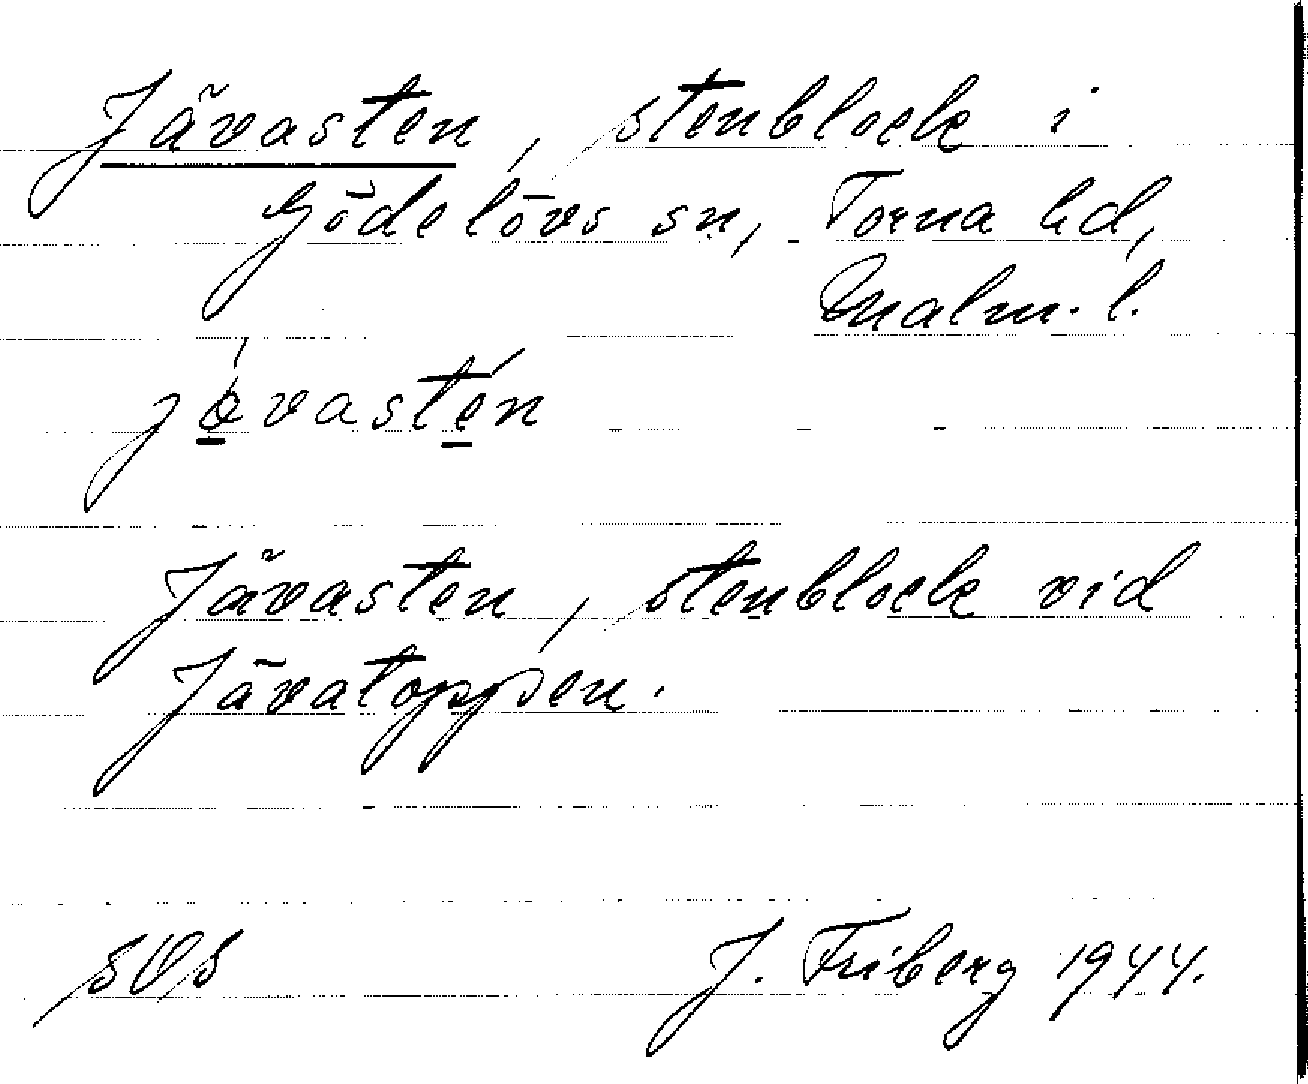 Jävasten, stenblock i
Gödelövs sn, Torna hd,
Malm. l.
jǫ́vastę́n
Jävasten, stenblock vid
Jävatoppen.
SOS J. Friberg 1944.